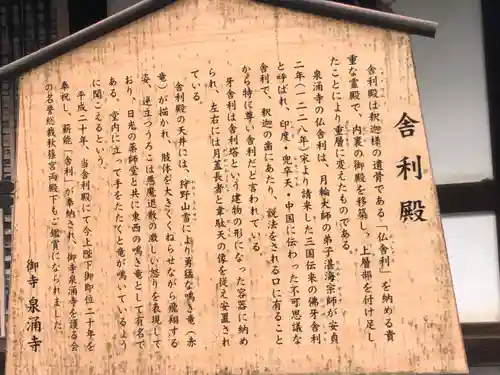 舎利殿
舎利殿は釈迦様の遺骨である「仏舎利」を納める貴
重な霊殿で、内裏の御殿を移築し、上層部を付け足し
たことにより、重層に変えたものである。
泉涌寺の仏舎利は、月輪大師の弟子湛海宗師が安貞
たんかいりっし
あんてい
二年（一二二八年）宋より請来した三国伝来の佛牙舎利
と呼ばれ、印度・兜卒天・中国に伝わった不可思議な
舎利で、釈迦の歯にあたり、説法をされる口に有ること
から特に尊い舎利だと言われている。
牙舎利は舎利塔という建物の形になった容器に納め
られ、左右には月蓋長者と韋駄天の像を従え安置され
ている。
舎利殿の天井には、狩野山雪により勇猛な鳴き竜（赤
竜）が描かれ、肢体を大きくくねらせながら飛翔する
姿、逆立つうろこは悪魔退散の激しい怒りを表現して
おり、日光の薬師堂と共に東西の鳴き竜として有名で
ある。堂内に立って手をたたくと竜が鳴いているよう
に聞こえるという。
平成二十年、当舎利殿にて今上陛下御即位二十年を
奉祝し、薪能「舎利」が奉納され、御寺泉涌寺を護る会
の名誉総裁秋篠宮両殿下もご鑑賞になられました。
御寺泉涌寺